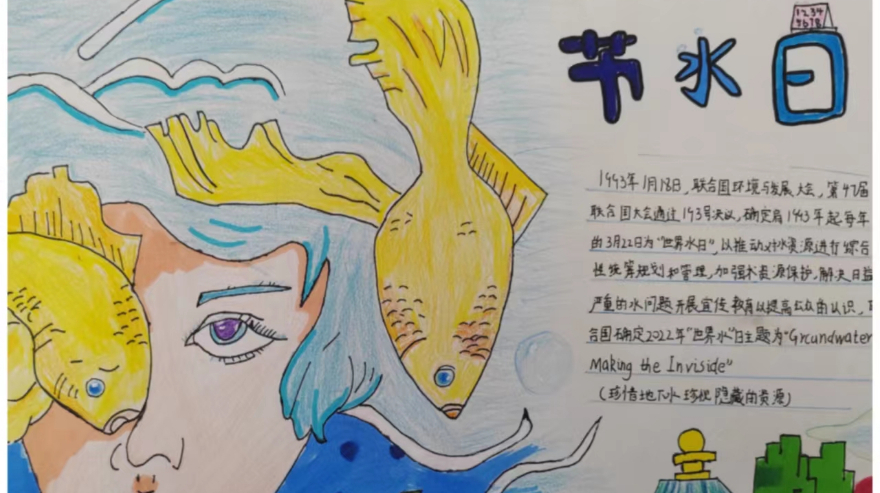 节水日
1234
5678
1993年1月18日,联合国环境与发展大会,第47届
联合国大会通过193号决议,确定自1993年起每年
的3月22日为"世界水日",以推动对水资源进行综合
性统筹规划和管理,加强水资源保护,解决日益
严重的水问题开展宣传教育以提高公众的认识,
合国确定2022年"世界水"日主题为"Groundwater
Making the Inviside"
(珍惜地下水 珍视隐藏的资源)